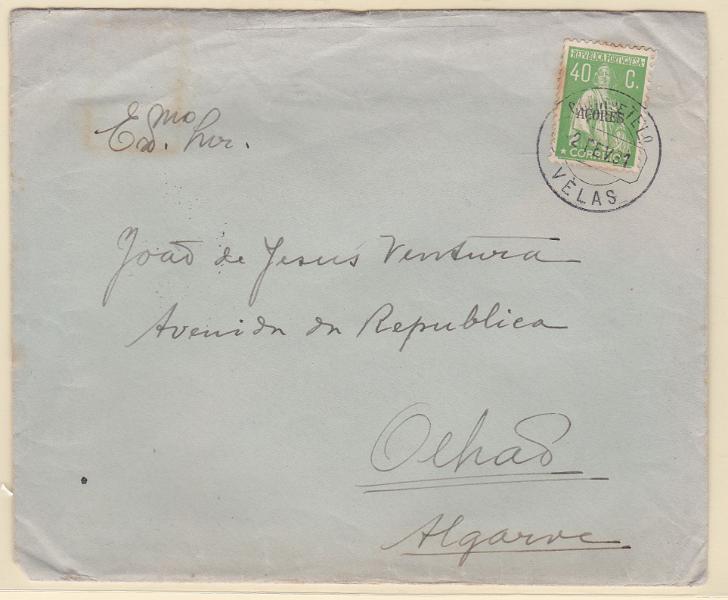 REPUBLICA PORTUGUESA
40 C.
AÇORES
CORREIO
2 FEV. 31
VÉLAS
Exmo Snr.
João de Jesus Ventura
Avenida da Republica
Olhão
Algarve